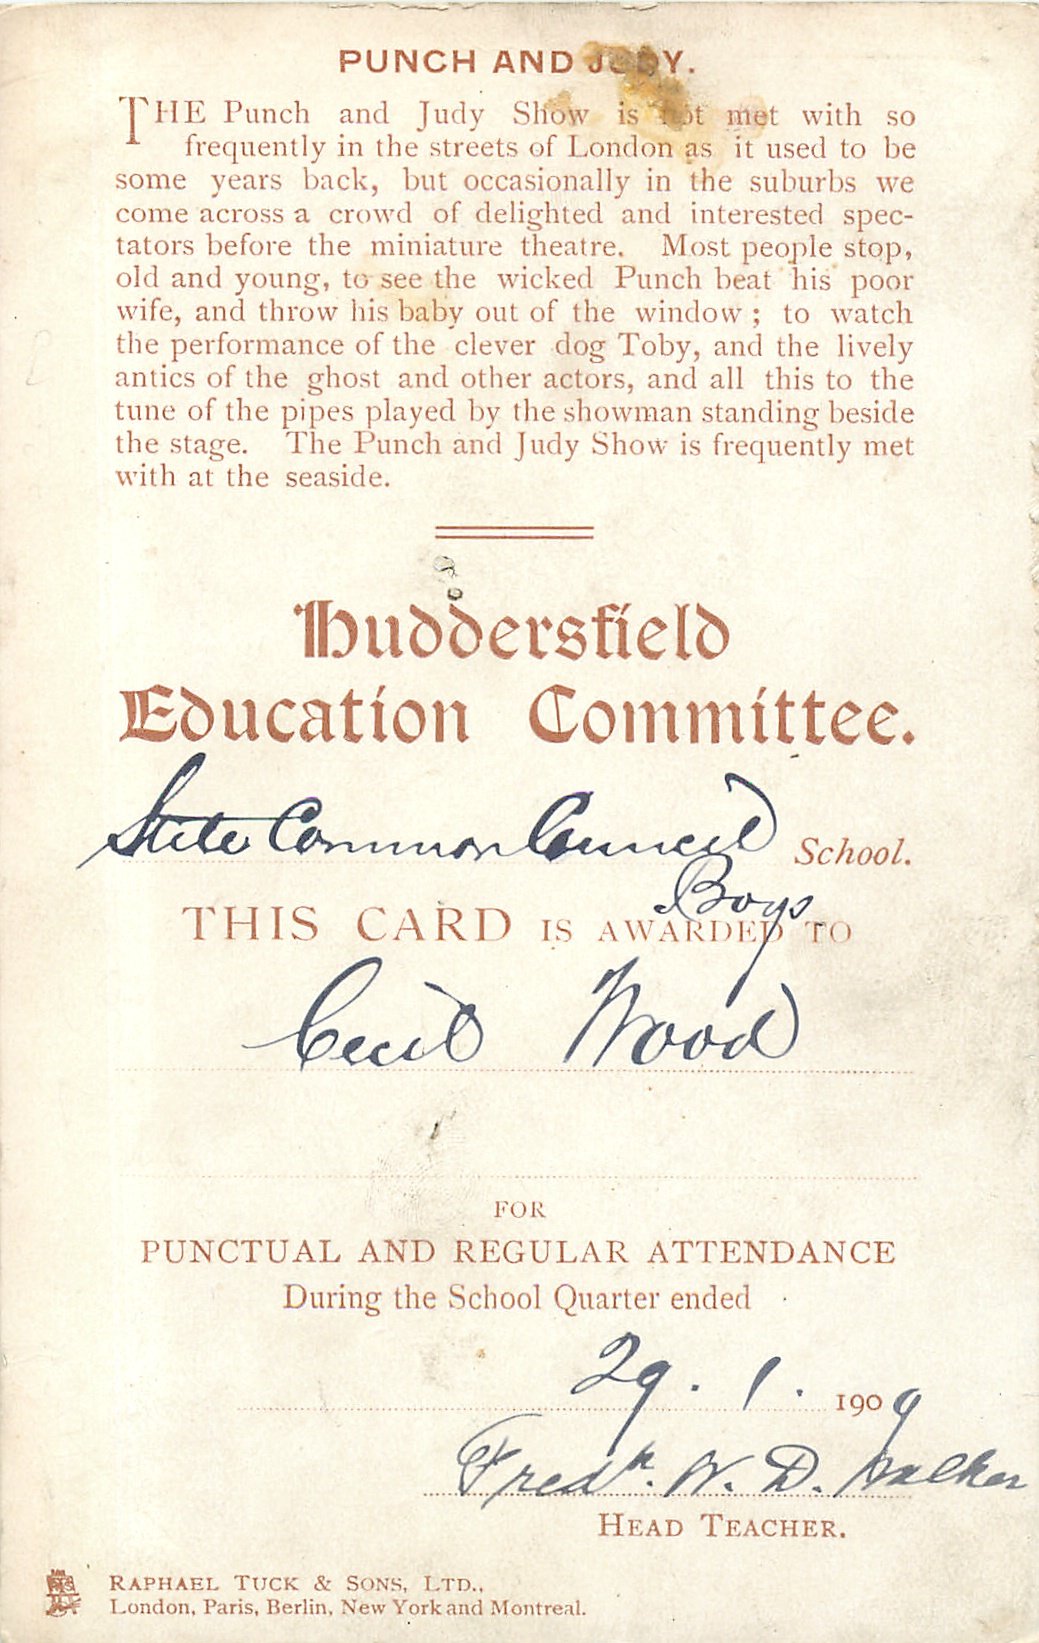 PUNCH AND JUDY.
THE Punch and Judy Show is not met with so
frequently in the streets of London as it used to be
some years back, but occasionally in the suburbs we
come across a crowd of delighted and interested spec-
tators before the miniature theatre. Most people stop,
old and young, to see the wicked Punch beat his poor
wife, and throw his baby out of the window; to watch
the performance of the clever dog Toby, and the lively
antics of the ghost and other actors, and all this to the
tune of the pipes played by the showman standing beside
the stage. The Punch and Judy Show is frequently met
with at the seaside.
Huddersfield
Education Committee.
Stile Common Council School.
Boys
THIS CARD IS AWARDED TO
Cecil Wood
FOR
PUNCTUAL AND REGULAR ATTENDANCE
During the School Quarter ended
29. 1. 1909
Fredk. W. D. Walker
HEAD TEACHER.
RAPHAEL TUCK & SONS, LTD.,
London, Paris, Berlin, New York and Montreal.